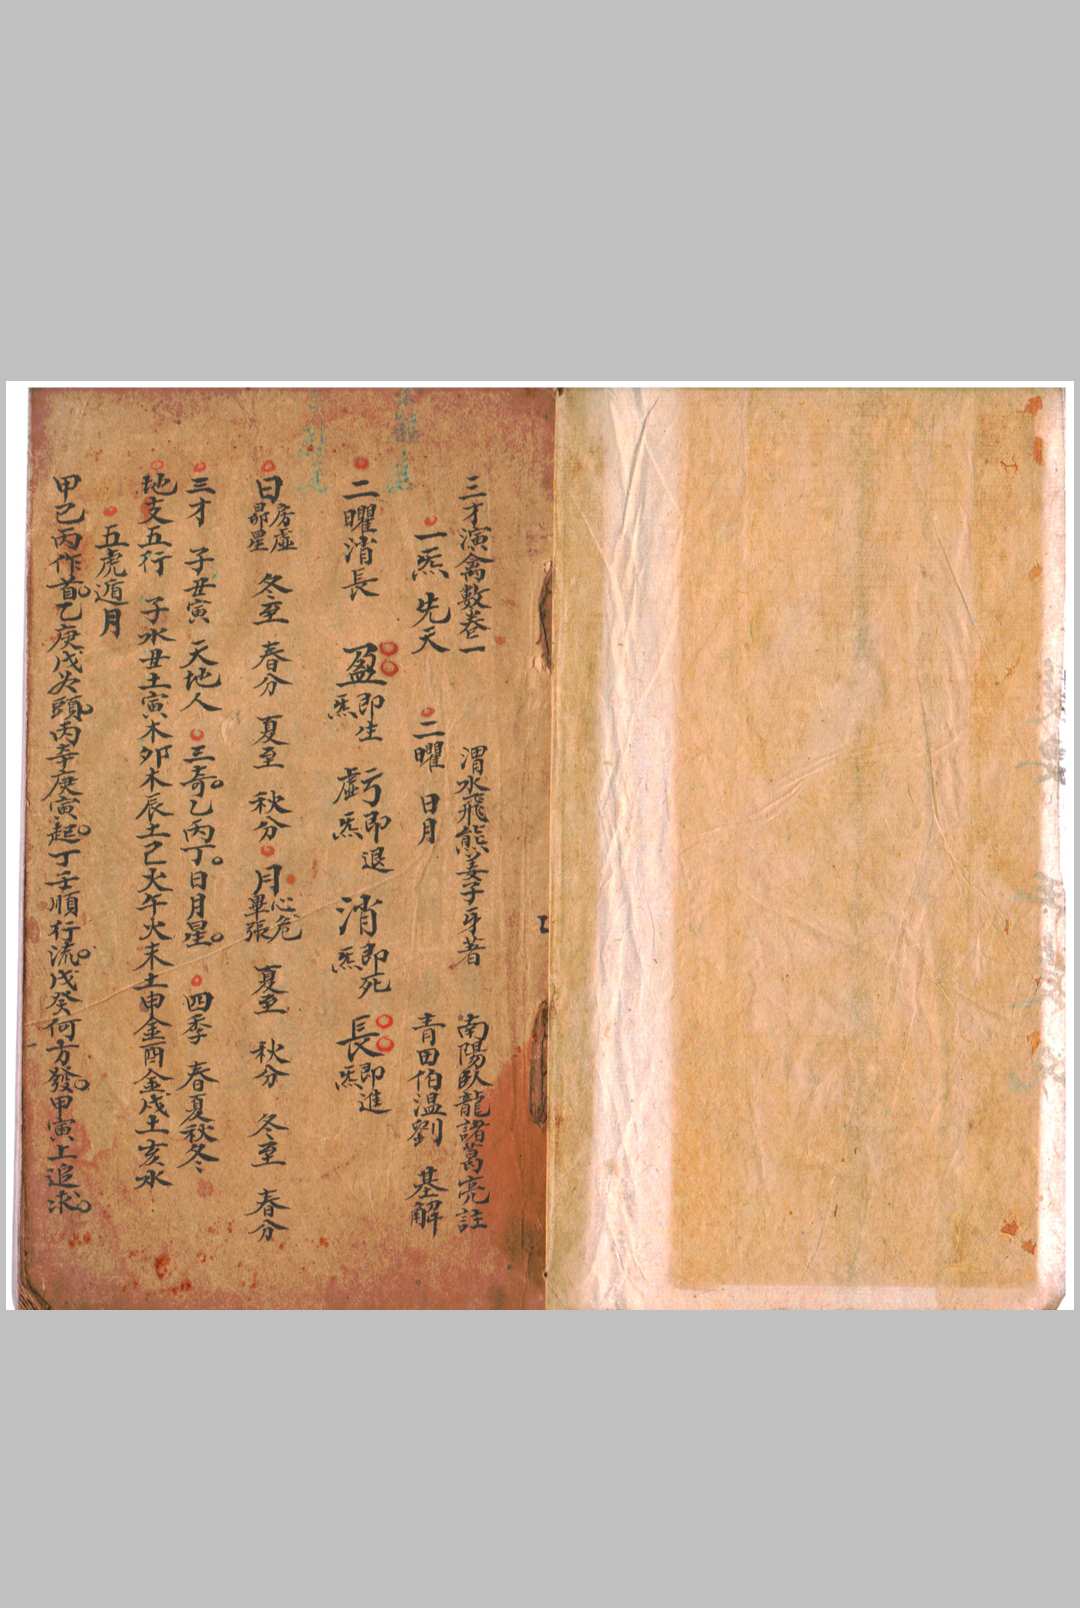 三才演禽數卷一 渭水飛熊姜子牙著 南陽臥龍諸葛亮註
一炁先天 二曜 日月 青田伯温劉 基解
二曜消長 盈即生炁 虧即退炁 消即死炁 長即進炁
日房虛昴星 冬至 春分 夏至 秋分 月心危畢張 夏至 秋分 冬至 春分
三才 子丑寅 天地人 三奇乙丙丁日月星 四季 春夏秋冬
地支五行 子水丑土寅木卯木辰土己火午火未土申金酉金戌土亥水
五虎遁月
甲己丙作首乙庚戊為頭丙辛庚寅起丁壬順行流戊癸何方發甲寅上追求